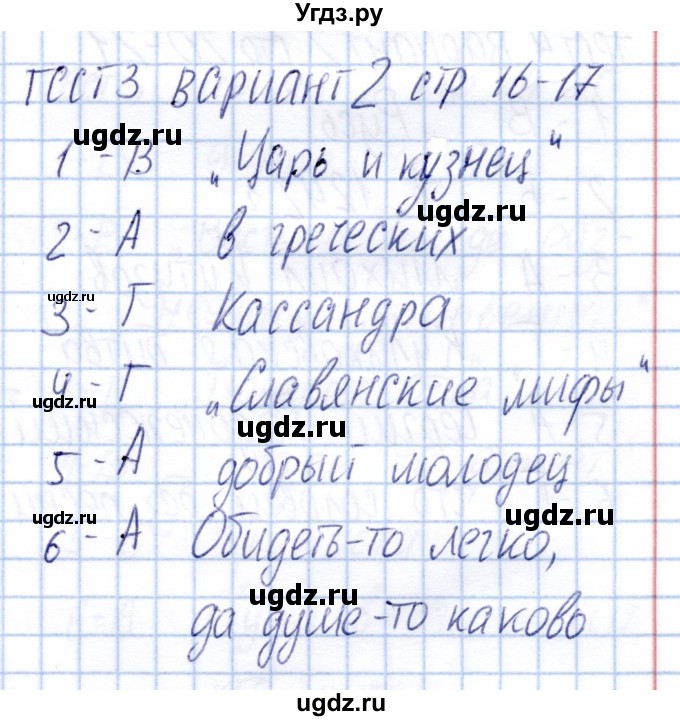 Угдз.ру
тест 3 вариант 2 стр 16-17
ugdz.ru
1 - В „Царь и кузнец"
ugdz.ru
2 - А в греческих
ugdz.ru
3 - Г Кассандра
4 - Г „Славянские мифы"
ugdz.ru
ugdz.ru
5 - А добрый молодец
ugdz.ru
ugdz.ru
6 - А Обидеть-то легко,
ugdz.ru
да душе-то каково
ugdz.ru